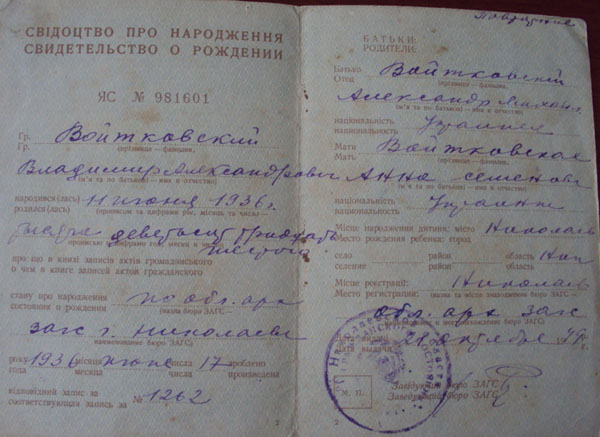 СВІДОЦТВО ПРО НАРОДЖЕННЯ
СВИДЕТЕЛЬСТВО О РОЖДЕНИИ
ЯС № 981601
Гр. Войтковский
Гр. (прізвище – фамилия,
Владимир Александрович
(ім'я та по батькові – имя и отчество)
народився(лась) 11 июня 1936 г.
родился(лась) (прописом та цифрами рік, місяць та число)
тысяча девятьсот тридцать
шестого
про що в книзі записів актів громадянського
о чем в книге записей актов гражданского
стану про народження по обл. арх
состояния о рождении (назва бюро ЗАГС –
загс г. Николаева
наименование бюро ЗАГС)
року 1936 місяця июня числа 17 зроблено
года месяца числа произведена
відповідний запис за № 1262
соответствующая запись за
2
Повторное
БАТЬКИ:
РОДИТЕЛИ:
Батько Войтковский
Отец (прізвище – фамилия,
Александр
ім'я та по батькові – имя и отчество)
національність
национальность
Мати Войтковская
Мать (прізвище – фамилия,
Анна
ім'я та по батькові – имя и отчество)
національність
национальность
Місце народження дитини: місто Николаев
Место рождения ребенка: город
село район область
селение район область
Місце реєстрації: Николаев
Место регистрации: (назва та місце знаходження бюро ЗАГС –
обл. арх загс
видачі
выдачи
М. П.
Завідувач бюро ЗАГС
Заведующий бюро ЗАГС
2